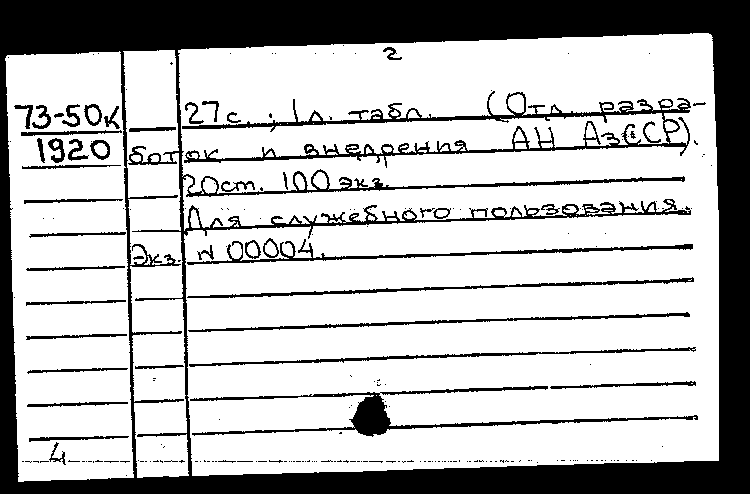 2
73-50к 27 с. ; 1 л. табл. (Отд. разра-
1920 боток и внедрения АН АзССР).
20 cm. 100 экз.
Для служебного пользования.
Экз. N 00004.
4